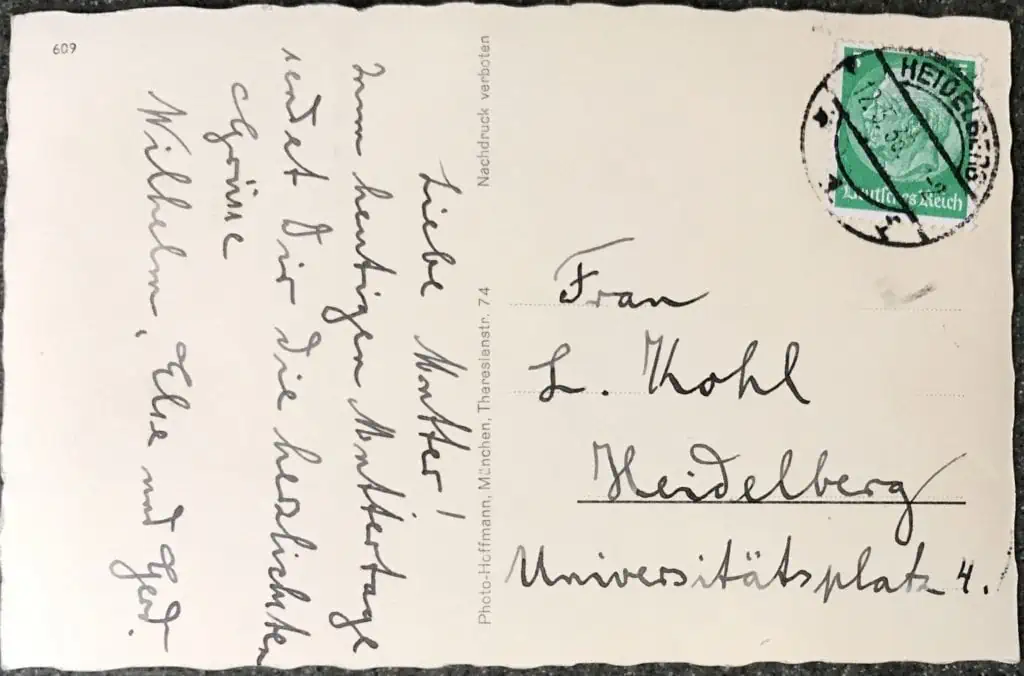 609
Liebe Mutter!
Zum heutigen Muttertage
sendet Dir die herzlichsten
Grüsse
Wilhelm, Else und Gerd.
Photo-Hoffmann, München, Theresienstr. 74 Nachdruck verboten
HEIDELBERG
5 5
Deutsches Reich
Frau
L. Kohl
Heidelberg
Universitätsplatz 4.